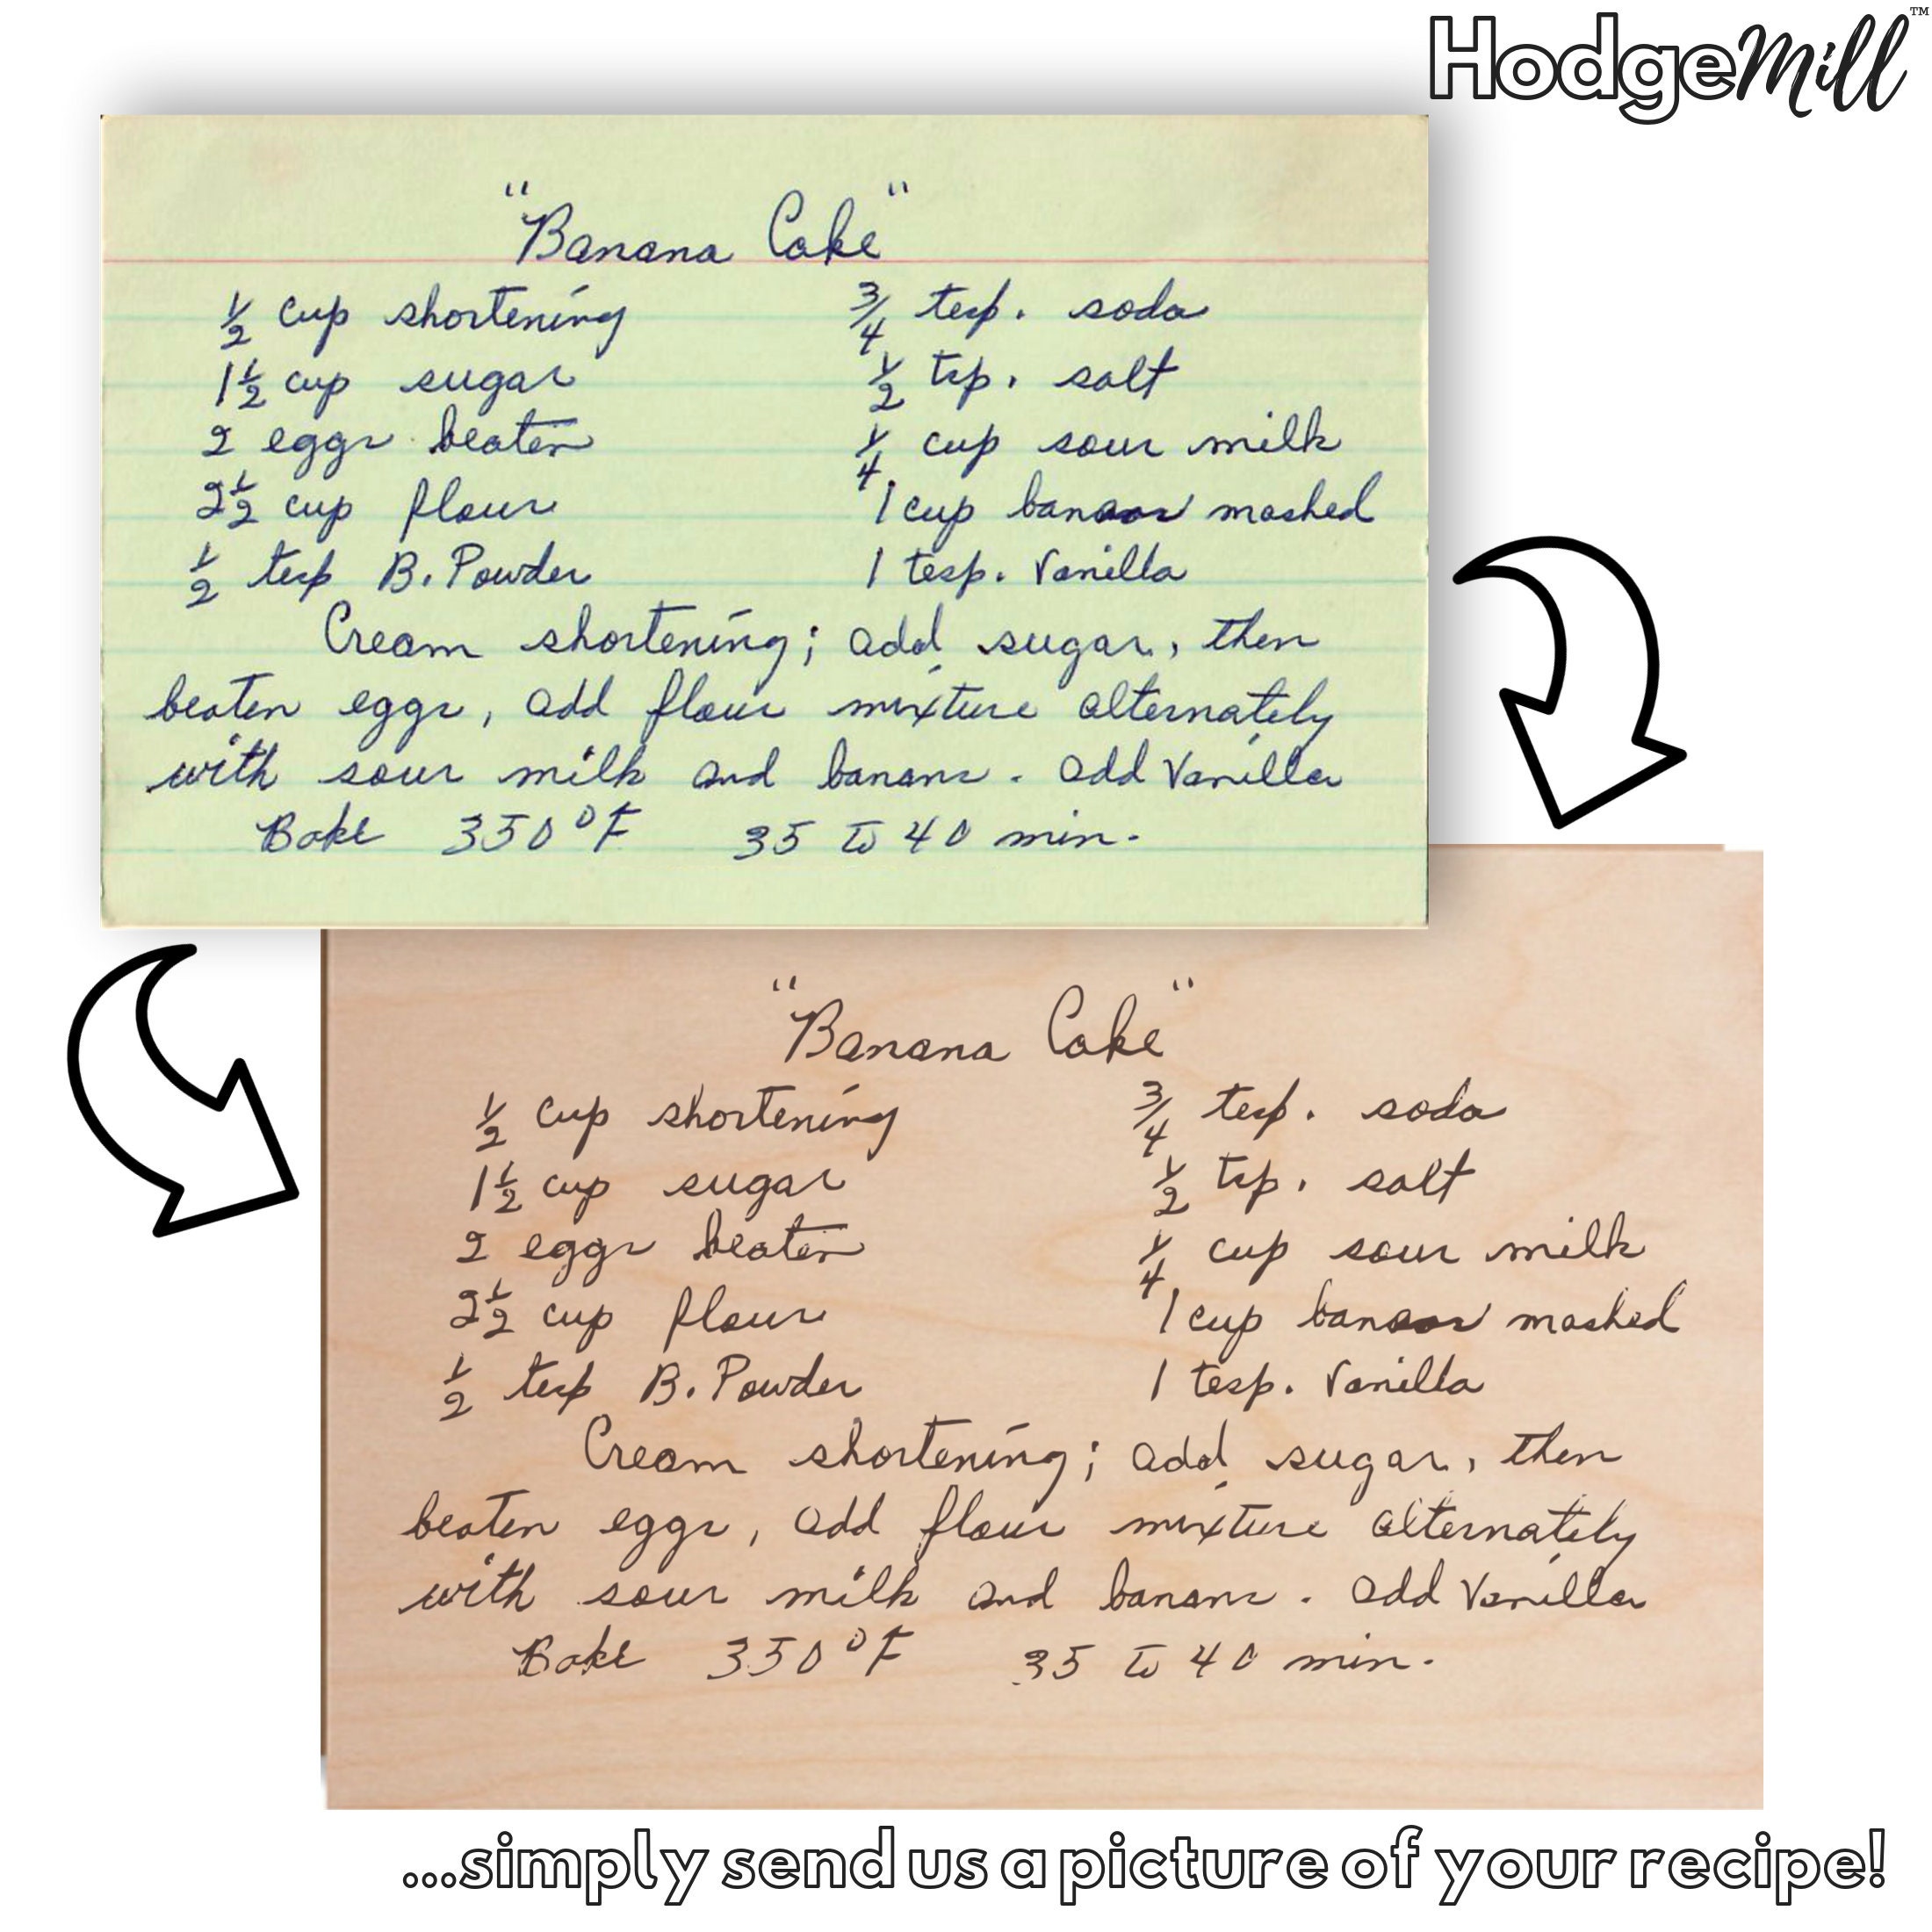 HodgeMill™
"Banana Cake"
½ cup shortening
1½ cup sugar
2 eggs beaten
2½ cup flour
½ tesp B. Powder
¾ tesp. soda
½ tsp. salt
¼ cup sour milk
1 cup mashed
1 tesp. Vanilla
Cream shortening; add sugar, then
beaten eggs, add flour mixture alternately
with sour milk and banana. add Vanilla
Bake 350°F 35 to 40 min.
"Banana Cake"
½ cup shortening
1½ cup sugar
2 eggs beaten
2½ cup flour
½ tesp B. Powder
¾ tesp. soda
½ tsp. salt
¼ cup sour milk
1 cup mashed
1 tesp. Vanilla
Cream shortening; add sugar, then
beaten eggs, add flour mixture alternately
with sour milk and banana. add Vanilla
Bake 350°F 35 to 40 min.
...simply send us a picture of your recipe!